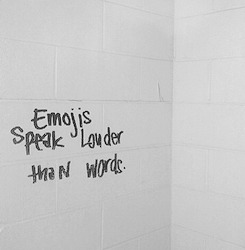 Emojis
SPeak Louder
thaN words.